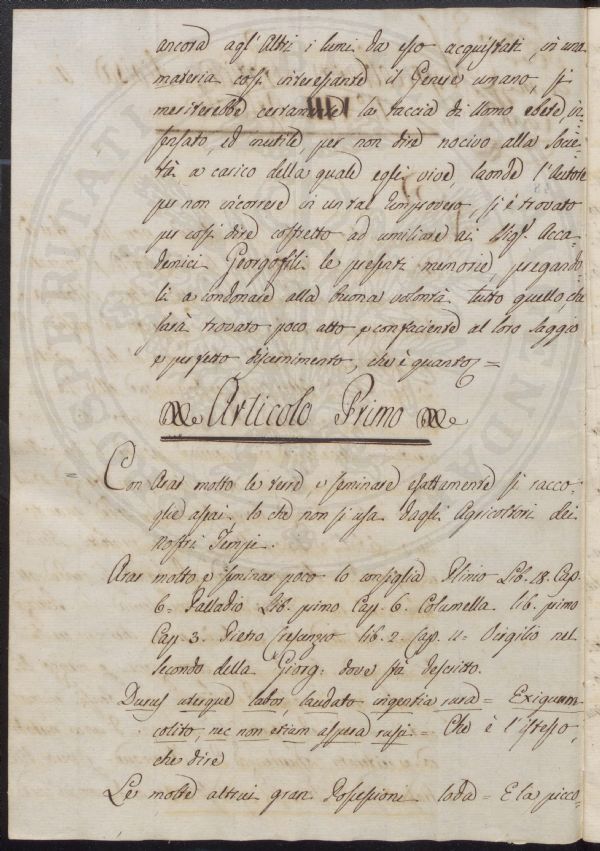 ancora agl'Altri i lumi da esso acquistati, in una
materia così interessante il Genere umano, si
meriterebbe certamente la taccia di Uomo ebete, in-
sensato, ed inutile, per non dire nocivo alla Socie-
tà a carico della quale egli vive, laonde l'Autore
per non incorrere in un tal rimprovero, si è trovato
per così dire costretto ad umiliare ai Sigg.ri Acca-
demici Georgofili le presenti memorie, pregando-
li a condonare alla buona volontà tutto quello, che
sarà trovato poco atto e confaciente al loro saggio
e perfetto discernimento, che è quanto =
Articolo Primo
= Con Arar molto le terre e seminare esattamente si racco-
glie assai lo che non si usa dagli Agricoltori dei
nostri Tempi.
Arar molto e seminar poco lo consiglia Plinio Lib. 18. Cap.
6 = Palladio Lib. primo Cap. 6. Columella lib. primo
Cap. 3. Pietro Crescenzio lib. 2. Cap. 11 = Virgilio nel
secondo della Giorg: dove stà descritto.
labor, laudato ingentia rura = Exiguum
colito, nec non etiam aspera = Che è l'istesso,
che dire
Le molte altrui gran Possessioni loda = E la picco-